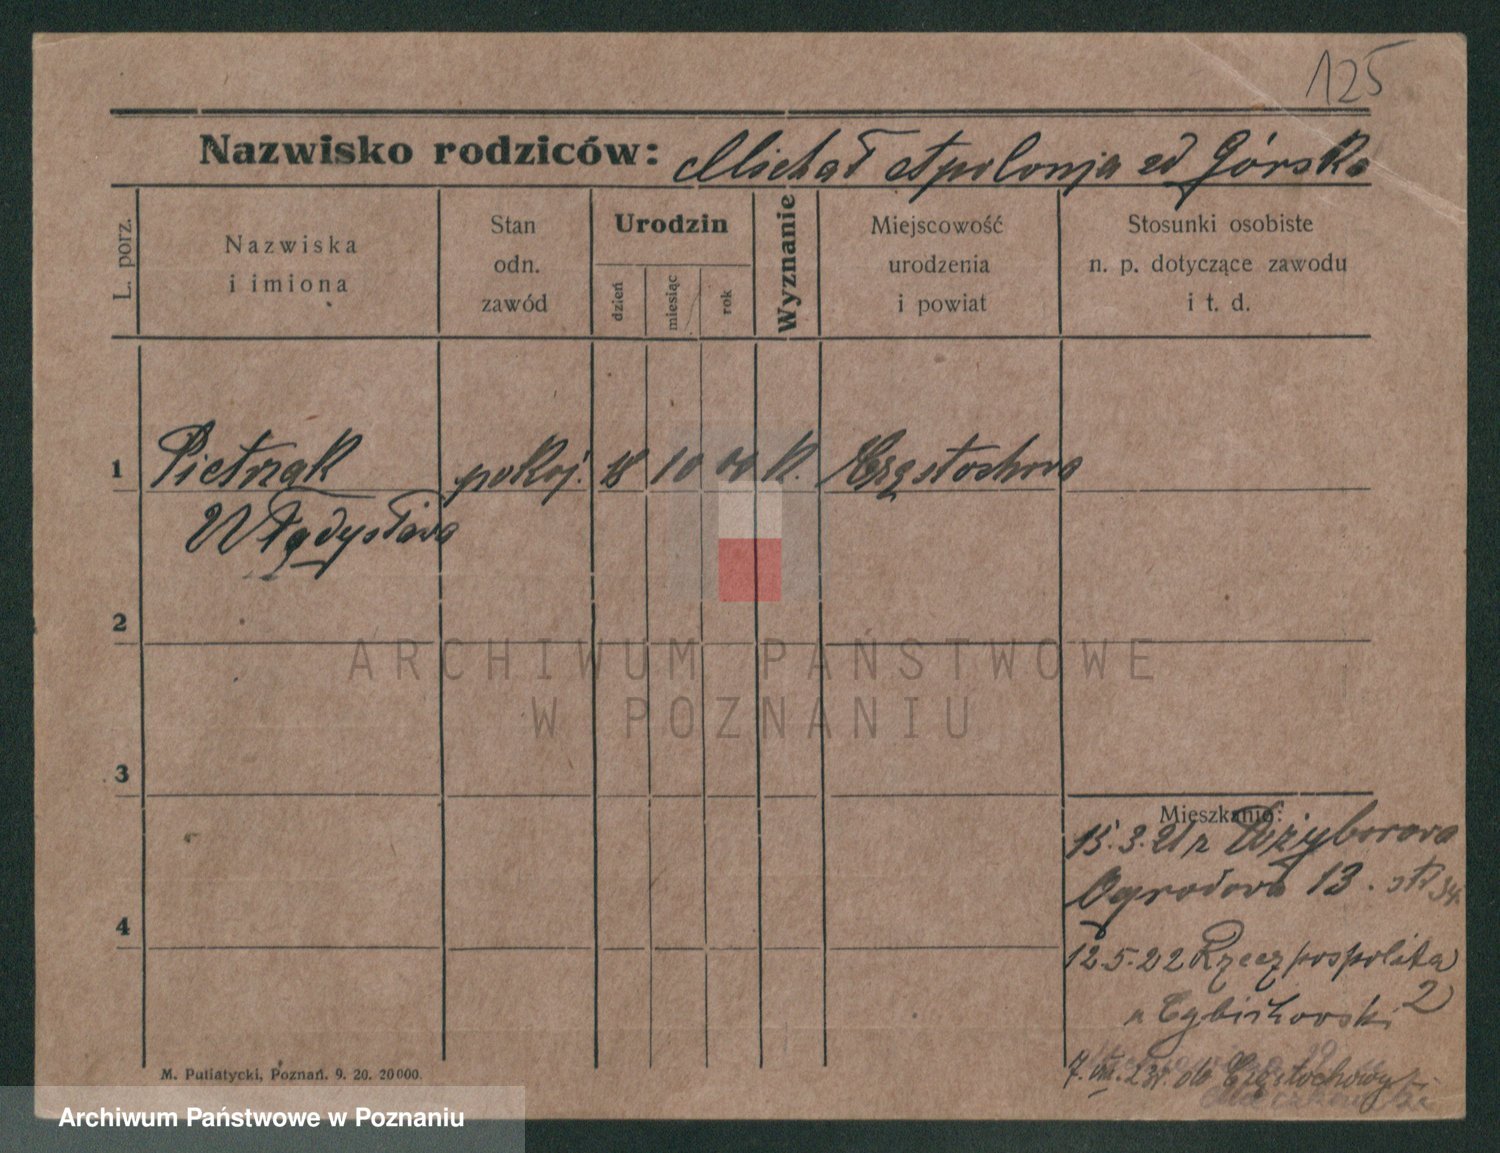 125
Nazwisko rodziców: Michał Apolonja zd Górska
L. porz.
Nazwiska
i imiona
Stan
odn.
zawód
Urodzin
dzień
miesiąc
rok
Wyznanie
Miejscowość
urodzenia
i powiat
Stosunki osobiste
n. p. dotyczące zawodu
i t. d.
1 Pietrzak pokoj. 18 10 00 K. Częstochowa
Władysława
2
ARCHIWUM PAŃSTWOWE
W POZNANIU
3
Mieszkanie:
15.3.21 z
Ogrodowa 13.
4
12.5.22 Rzeczpospolita
2
do Częstochowy
M. Putiatycki, Poznań. 9. 20. 20000.
Archiwum Państwowe w Poznaniu